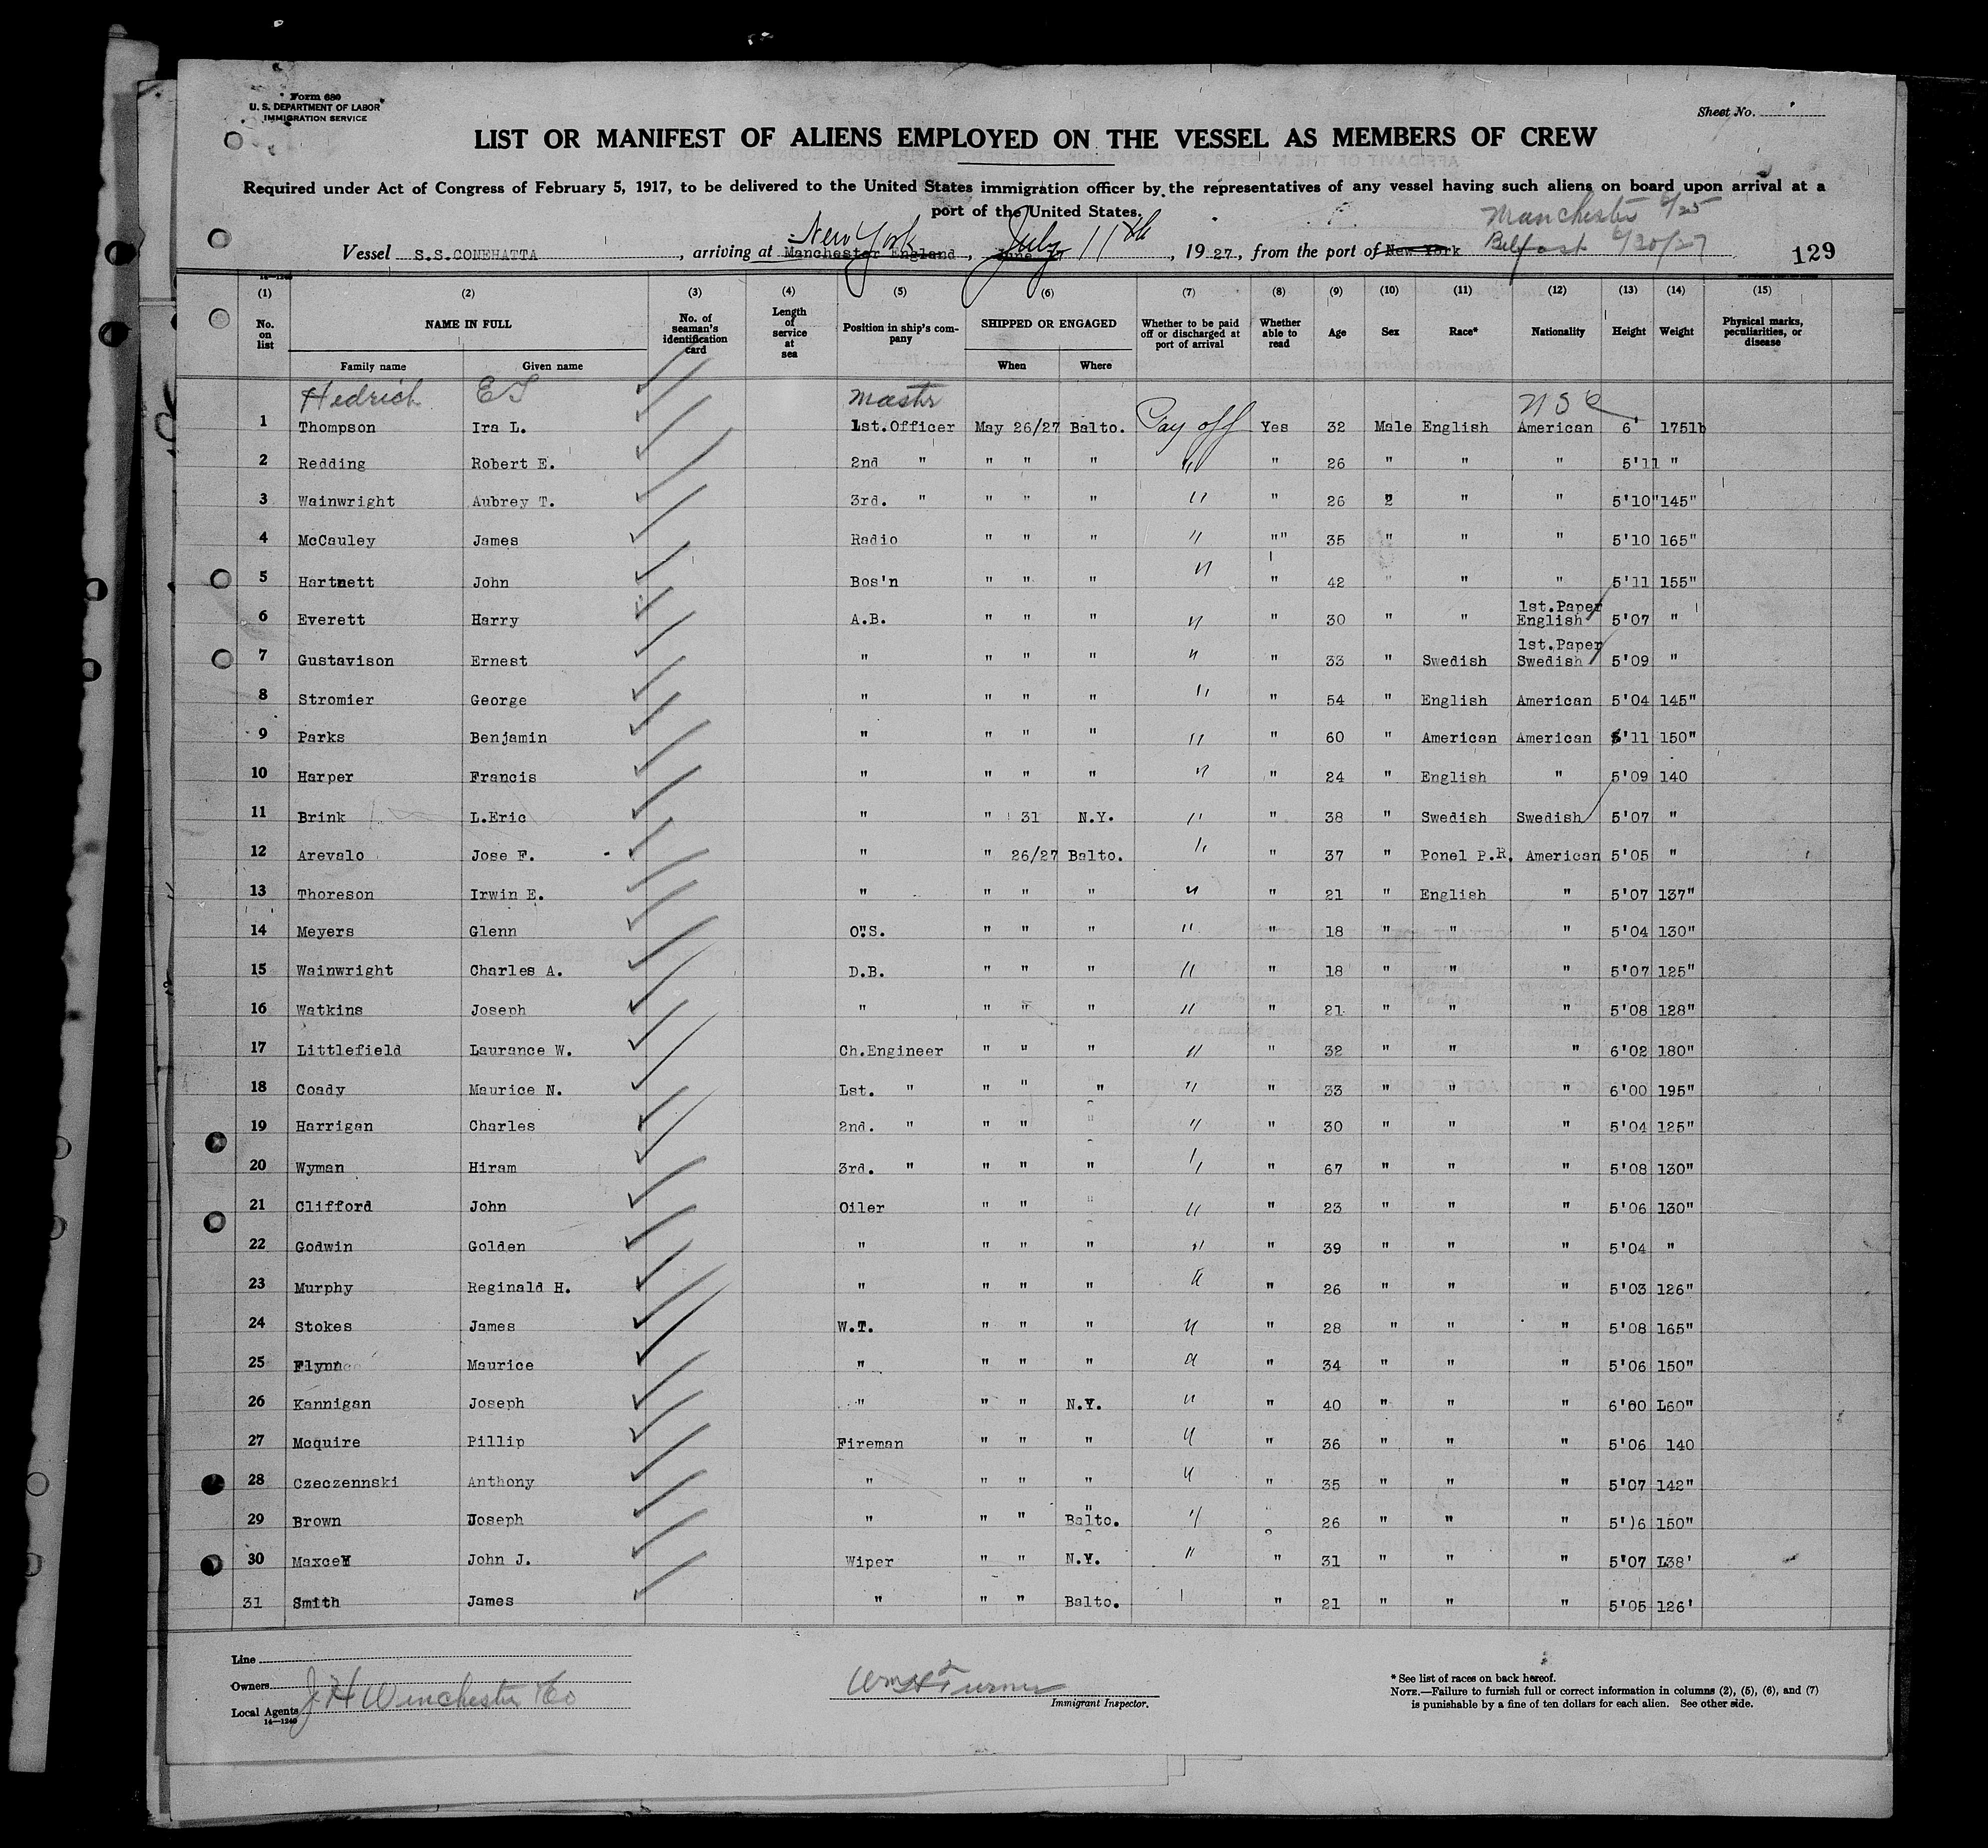 Form 680
U. S. DEPARTMENT OF LABOR
IMMIGRATION SERVICE
Sheet No.
LIST OR MANIFEST OF ALIENS EMPLOYED ON THE VESSEL AS MEMBERS OF CREW
Required under Act of Congress of February 5, 1917, to be delivered to the United States immigration officer by the representatives of any vessel having such aliens on board upon arrival at a
port of the United States.
New York July 11th Manchester 6/25
Vessel S.S.CONEHATTA, arriving at Manchester England, June 17, 1927, from the port of New York Belfast 6/30/27 129
(1) (2) (3) (4) (5) (6) (7) (8) (9) (10) (11) (12) (13) (14) (15)
No. on list NAME IN FULL Family name Given name No. of seaman's identification card Length of service at sea Position in ship's company SHIPPED OR ENGAGED When Where Whether to be paid off or discharged at port of arrival Whether able to read Age Sex Race* Nationality Height Weight Physical marks, peculiarities, or disease
Hedrich E S Mastr U S C
1 Thompson Ira L. 1st.Officer May 26/27 Balto. Pay off Yes 32 Male English American 6' 175lb
2 Redding Robert E. 2nd " " " " " " 26 " " " 5'11 "
3 Wainwright Aubrey T. 3rd. " " " " " " 26 " " " 5'10" 145"
4 McCauley James Radio " " " " "" 35 " " " 5'10 165"
5 Hartnett John Bos'n " " " " " 42 " " " 5'11 155"
6 Everett Harry A.B. " " " " " 30 " " 1st.Paper English 5'07 "
7 Gustavison Ernest " " " " " " 33 " Swedish 1st.Paper Swedish 5'09 "
8 Stromier George " " " " " " 54 " English American 5'04 145"
9 Parks Benjamin " " " " " " 60 " American American 5'11 150"
10 Harper Francis " " " " " " 24 " English " 5'09 140
11 Brink L.Eric " " 31 N.Y. " " 38 " Swedish Swedish 5'07 "
12 Arevalo Jose F. " " 26/27 Balto. " " 37 " Ponel P.R. American 5'05 "
13 Thoreson Irwin E. " " " " " " 21 " English " 5'07 137"
14 Meyers Glenn O.S. " " " " " 18 " " " 5'04 130"
15 Wainwright Charles A. D.B. " " " " " 18 " " " 5'07 125"
16 Watkins Joseph " " " " " " 21 " " " 5'08 128"
17 Littlefield Laurance W. Ch.Engineer " " " " " 32 " " " 6'02 180"
18 Coady Maurice N. Lst. " " " " " " 33 " " " 6'00 195"
19 Harrigan Charles 2nd. " " " " " " 30 " " " 5'04 125"
20 Wyman Hiram 3rd. " " " " " " 67 " " " 5'08 130"
21 Clifford John Oiler " " " " " 23 " " " 5'06 130"
22 Godwin Golden " " " " " " 39 " " " 5'04 "
23 Murphy Reginald H. " " " " " " 26 " " " 5'03 126"
24 Stokes James W.T. " " " " " 28 " " " 5'08 165"
25 Flynn Maurice " " " " " " 34 " " " 5'06 150"
26 Kannigan Joseph " " " N.Y. " " 40 " " " 6'00 L60"
27 Mcquire Pillip Fireman " " " " " 36 " " " 5'06 140
28 Czeczennski Anthony " " " " " " 35 " " " 5'07 142"
29 Brown Joseph " " " Balto. " " 26 " " " 5')6 150"
30 Maxcey John J. Wiper " " N.Y. " " 31 " " " 5'07 L38'
31 Smith James " " " Balto. " " 21 " " " 5'05 126'
Line
Owners
Local Agents J H Winchester & Co
14—1240
Wm H Turner
Immigrant Inspector.
* See list of races on back hereof.
NOTE.—Failure to furnish full or correct information in columns (2), (5), (6), and (7)
is punishable by a fine of ten dollars for each alien. See other side.